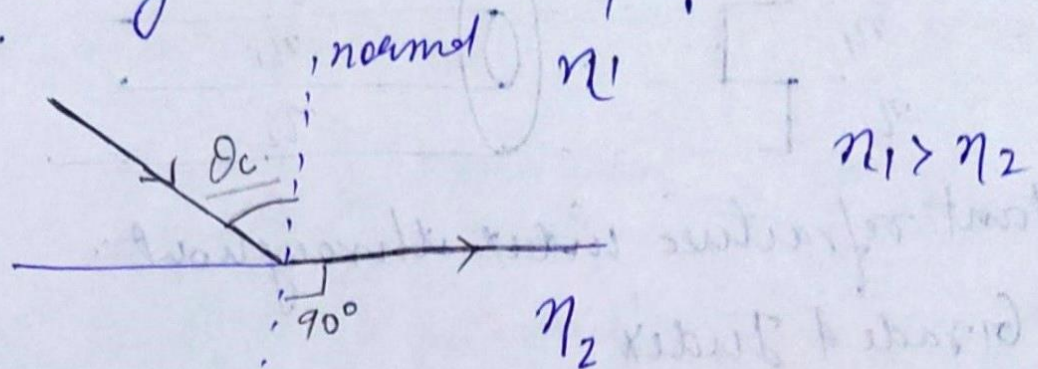 normal
n1
θc
n1 > n2
90°
n2